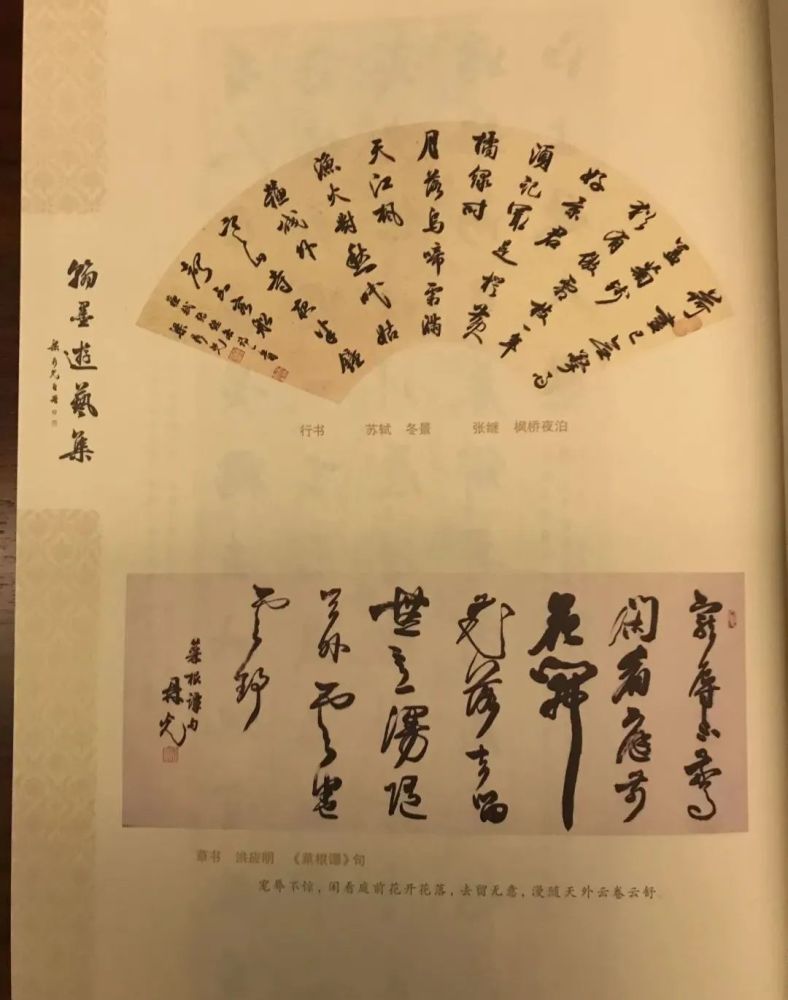 翰墨遊藝集
荷盡已無擎雨
蓋菊殘
猶有傲霜枝一年
好景君
須記最是橙黄
橘绿时
月落烏啼霜滿
天江楓
漁火對愁眠姑
蘓城外
寒山寺夜半鐘
聲到客船
行书 苏轼 冬景 张继 枫桥夜泊
寵辱不驚
闲看庭前
花開
花落去留
無意漫随
天外雲卷
雲舒
菜根譚句
草书 洪应明 《菜根谭》句
宠辱不惊，闲看庭前花开花落，去留无意，漫随天外云卷云舒.